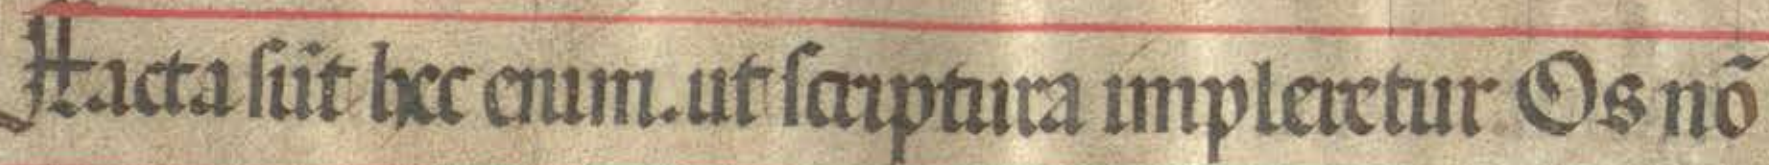 Facta sūt hec enim. ut scriptura impleretur Os nō